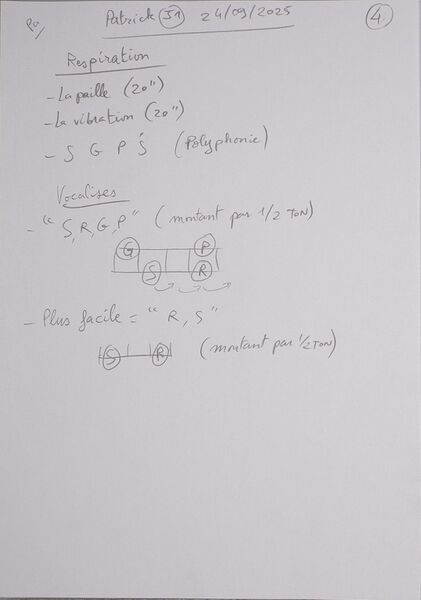 Patrick 31 24/09/2025 4
Respiration
- La paille (20")
- La vibration (20")
- S G P Ṡ (Polyphonie)
Vocalises
- " S, R, G, P " (montant par 1/2 TON)
G P
S R
- Plus facile = " R, S "
S R (montant par 1/2 TON)